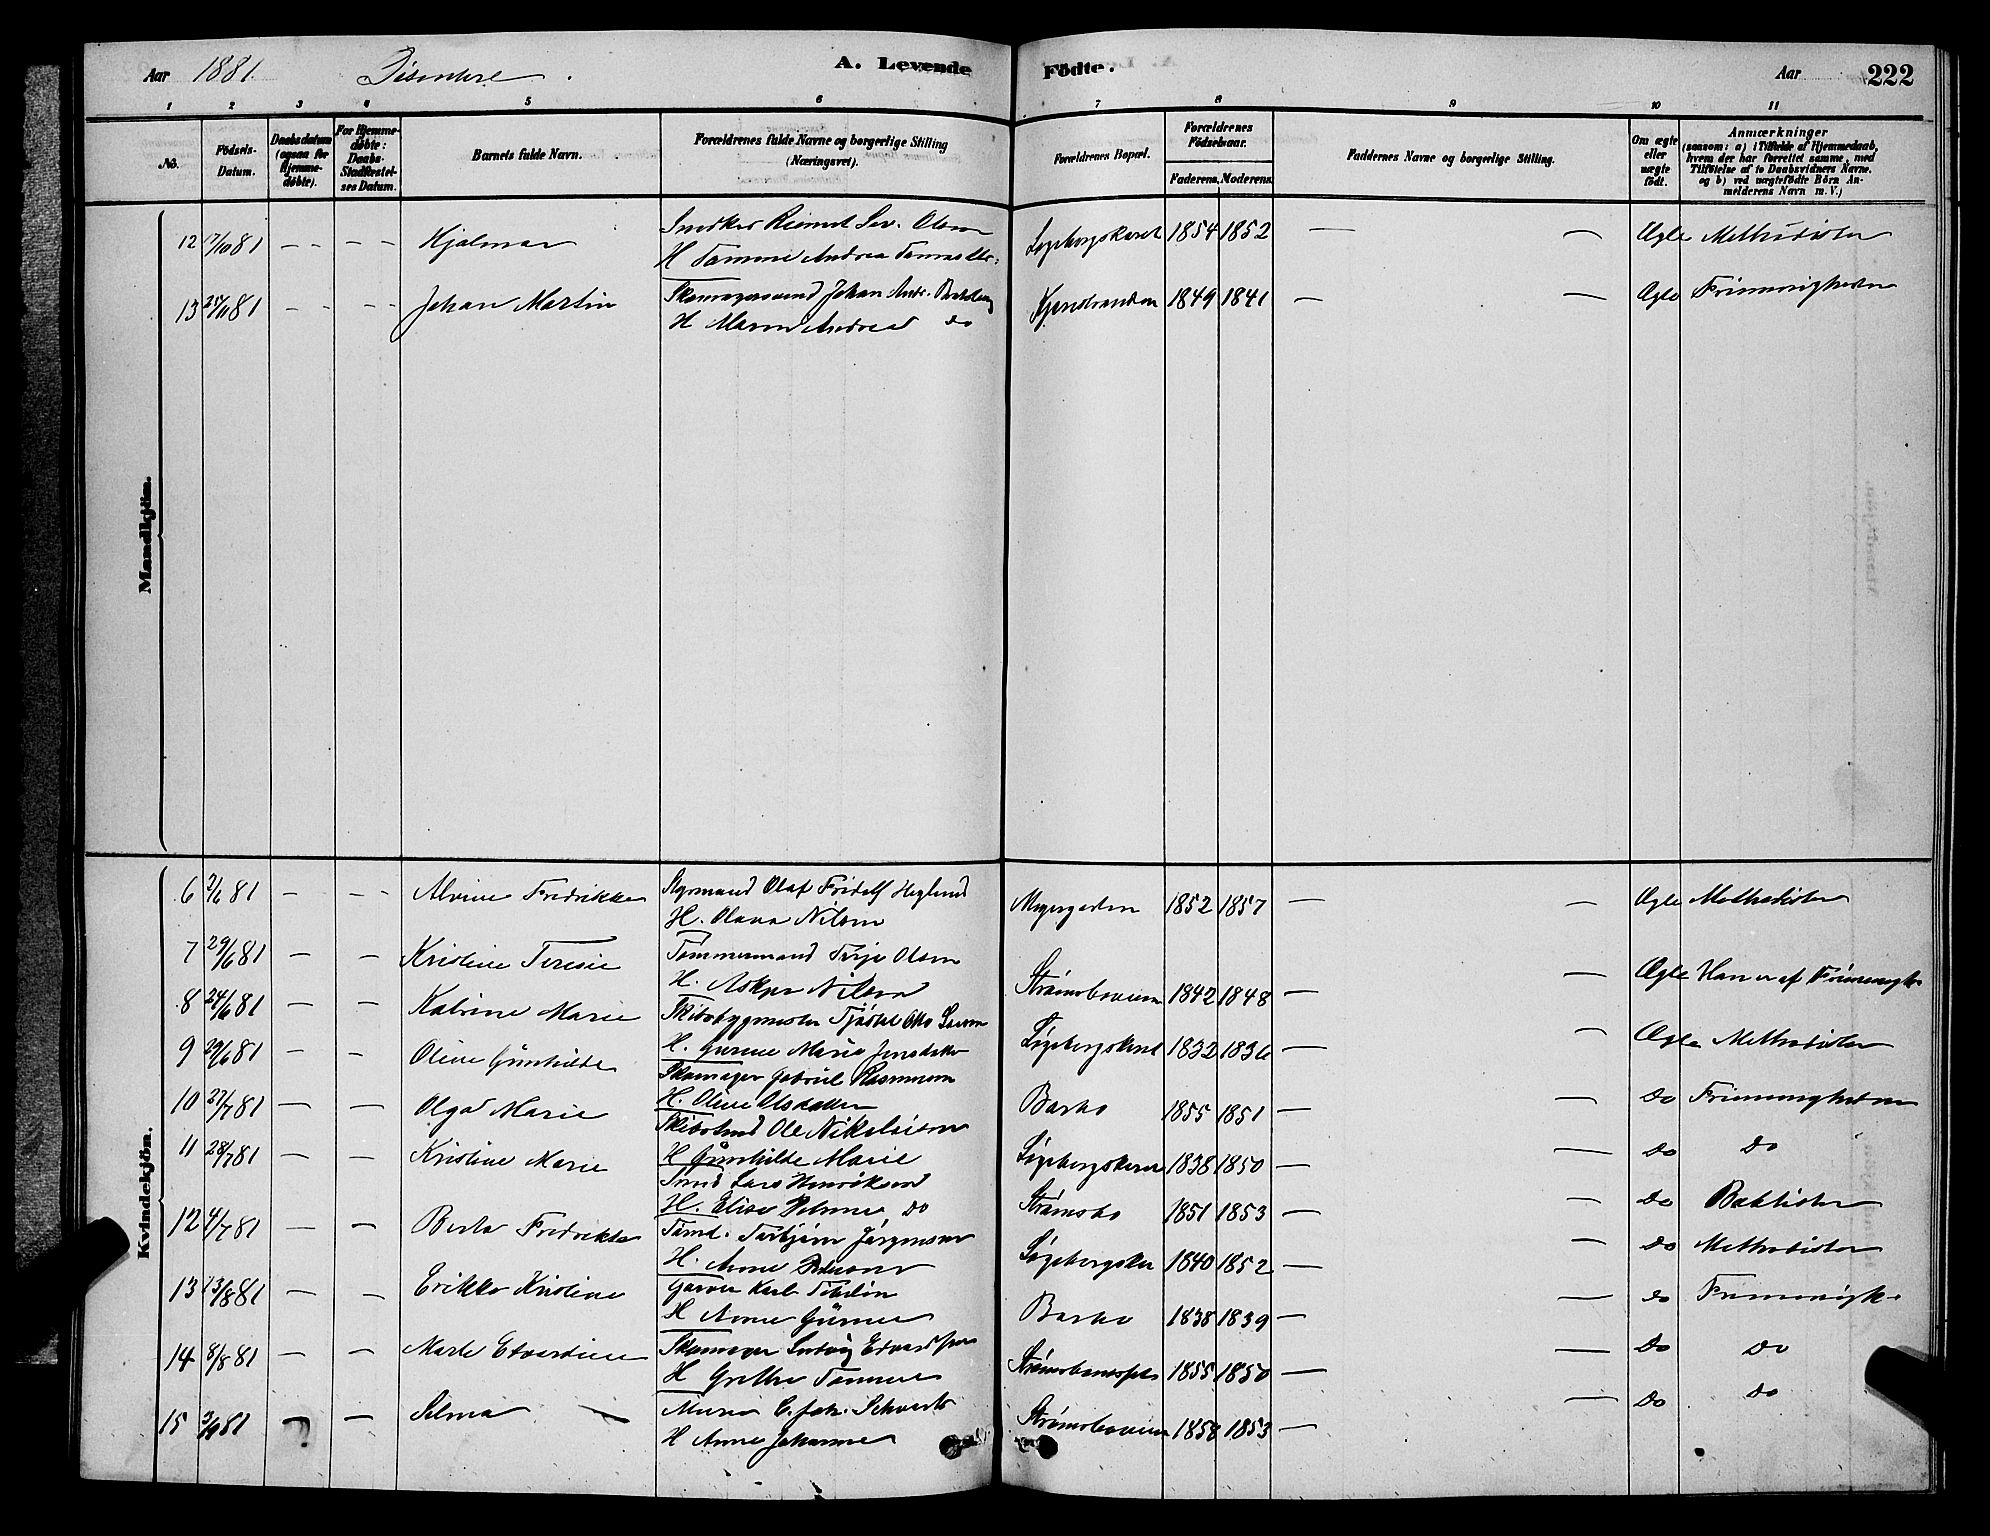 Aar 1881. Disentere. A. Levende Födte. Aar 222
1 2 3 4 5 6 7 8 9 10 11
No. Födsels-Datum. Daabsdatum (ogsaa for Hjemmedøbte). For Hjemmedøbte: Daabs-Stadfæstelses Datum. Barnets fulde Navn. Forældrenes fulde Navne og borgerlige Stilling (Næringsvei). Forældrenes Bopæl. Forældrenes Födselsaar. Faderens. Moderens. Faddernes Navne og borgerlige Stilling. Om ægte eller uægte födt. Anmærkninger (saasom: a) i Tilfælde af Hjemmedaab, hvem der har forrettet samme, med Tilföielse af to Daabsvidners Navne, og b) ved uægtefödte Börn Anmelderens Navn m. V.)
Mandkjön.
12 17/10 81 – – – – Hjalmar Snedker Olsen
H Tamine Andrea 1854 1852 – – Ægte Methodister
13 81 – – – – Johan Martin Skomagersvend Johan Andr.
H Maren Andrea do 1849 1841 – – Ægte Frimenigheden
Kvindekjön.
6 2/6 81 – – – Alvine Fredrikke Styrmand Olaf Fridolf Heglund
H. Olava Nilsen Meyergaden 1852 1857 – – Ægte Methodister
7 29/6 81 – – Kristine Teresie Tømmermand Terje Olsen
H. Nilsen Strømsboveien 1842 1848 – – Ægte Han er af Frimenigh.
8 24/6 81 – – Katrine Marie Skibsbygmester Otto
H. Gurine Marie Jensdatter 1832 1836 – – Ægte Methodister
9 29/6 81 – – Oline Gunhilde Skomager Gabriel Rasmussen
H. Oline Olsdatter Barbo 1855 1851 – – do Frimenigheden
10 27/7 81 – – Olga Marie Ole Nikolaisen
H Gunhilde Marie 1838 1850 – – do do
11 28/7 81 – – Kristine Marie Smed Lars Henriksen
H. Elise do Strømsbo 1851 1853 – – do Babtister
12 4/7 81 – – Berta Fredrikke Tømd. Torbjørn Jørgensen
H. Anne 1840 1852 – – do Methodister
13 13/8 81 – – Erikka Kristine Garver Karl
H Anne Gurine Barbo 1838 1839 – – do Frimenigh.
14 8/8 81 – – Marte Edvardine Skomager Ludvig Edvardsen
H Grethe Tomine 1855 1850 – – do do
15 81 – – Selma Murer C. Joh. Schwartz
H Anne Johanne Strømsboveien 1858 1853 – – do do